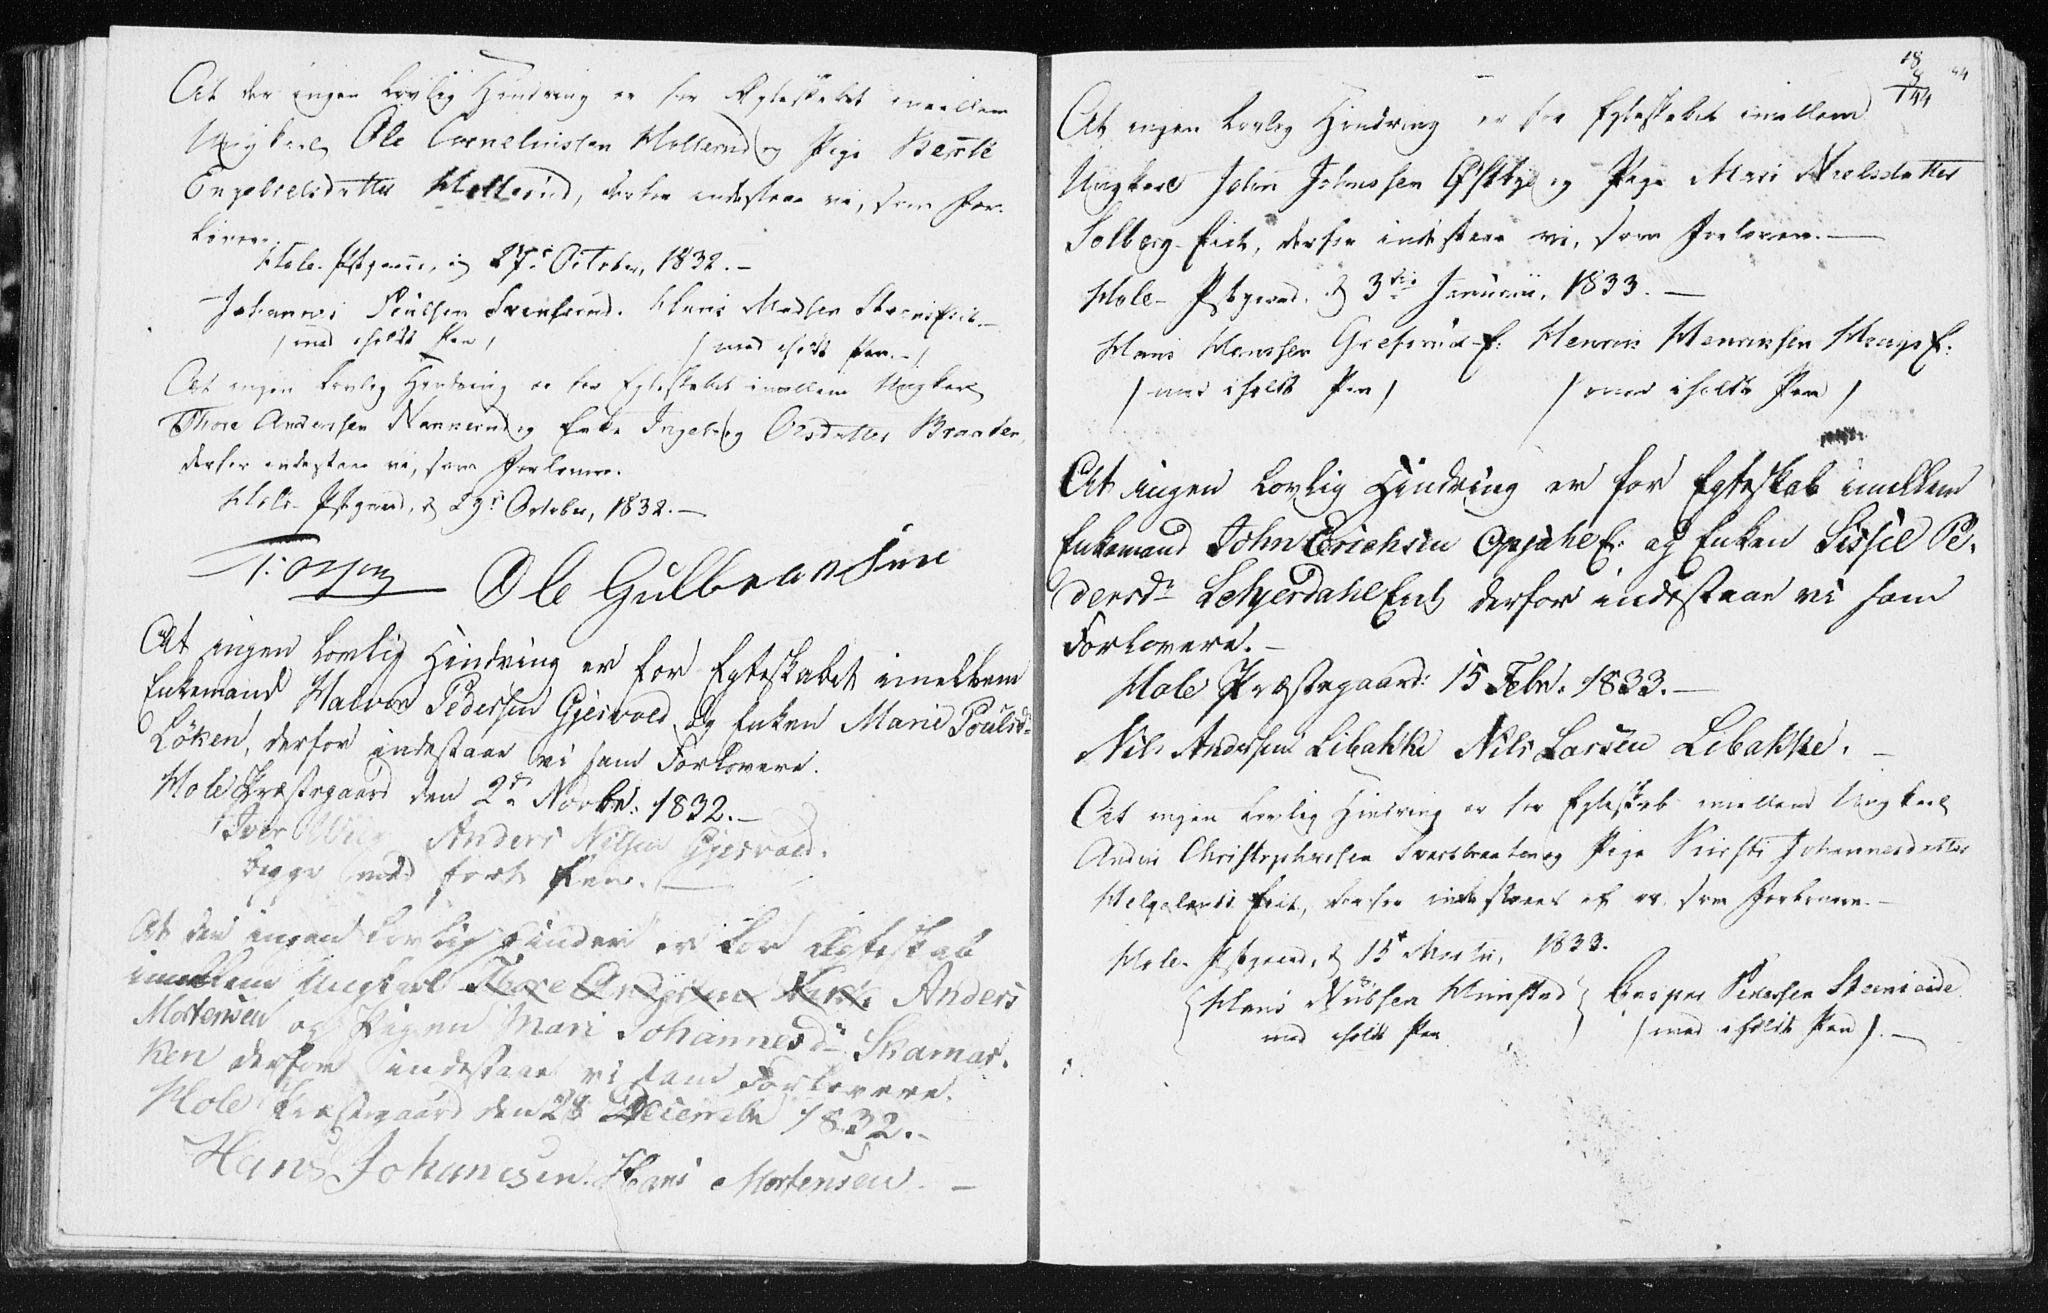 At der ingen lovlig Hindring er for Ægteskabet imellem
Ungkarl Ole Corneliussen Hollerud og Pige Berthe
Engebretsdatter Hollerud, derfor indestaae vi, som For-
lovere.
Hole Pstgaard, d 27de October, 1832. –
Johannes Poulsen Svensrud. Hans Madsen Steensfiert. –
/ med iholdt Pen / / med iholdt Pen. – /
At ingen lovlig Hindring er for Egteskabet imellem Ungkarl
Thore Andersen Nannerud og Enke Ingeborg Olsdatter Braaten,
derfor indestaae vi, som Forlovere.
Hole Pstgaard, d 29de October, 1832. –
Ole Gulbransen
At ingen Lovlig Hindring er for Egteskabet imellem
Enkemand Halvor Pedersen Gjesvold og Enken Marie Poulsdr
Löken, derfor indestaae vi som Forlovere.
Hole Præstegaard den 2de Novbr: 1832. –
Iver Wiig Anders Nilsen Gjesvold.
begge med fört Pen. –
At der ingen Lovlig Hinder er for Ægteskab
imellem Ungkarl Thore Andersen Anders
Mortensen og Pigen Mari Johannesdr Skamar-
ken derfor indestaae vi som Forlovere.
Hole Præstegaard den 28 December 1832. –
Hans Johanesen. Hans Mortensen. –
18
8
144
At ingen lovlig Hindring er for Egteskabet imellem
Ungkarl John Johnssen Østbye og Pige Mari Nielsdatter
Solberg-Eiet, derfor indestaae vi, som Forlovere. –
Hole Pstgaard, d 3die Januarii, 1833. –
Hans Hanssen Gresrud-E: Henrik Henriksen E:
/ med iholdt Pen / / med iholdt Pen /
At ingen Lovlig Hindring er for Egteskab imellem
Enkemand John Erichsen Opsahl E: og Enken Sissel Pe-
dersdr Lehjerdahl Eiet derfor indestaae vi som
Forlovere. –
Hole Præstegaard: 15 Febr. 1833. –
Nils Andersen Libakke Nils Larsen Libakke. –
At ingen Lovlig Hindring er for Egteskab imellem Ungkarl
Anders Christophersen Svarbraaten og Pige Kirsti Johannesdatter
Helgelands Eiet, derfor indestaaes af os som Forlovere. –
Hole Pstgaard, d 15 Martii, 1833.
Hans Hunstad Casper Pedersen Steenseide
med iholdt Pen / med iholdt Pen /. –